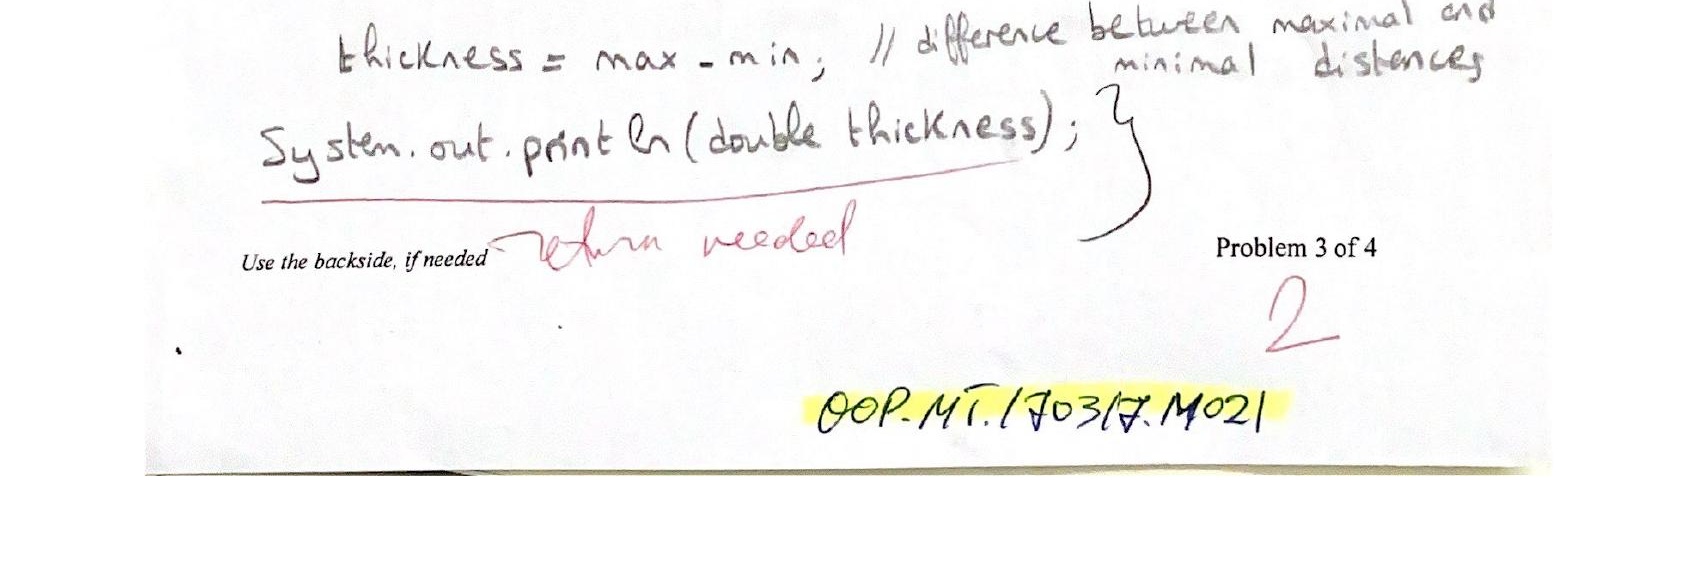 thickness = max - min; // difference between maximal and
minimal distances
System.out.println(double thickness); }
return needed
Use the backside, if needed
Problem 3 of 4
2
OOP.MT.170317.M021